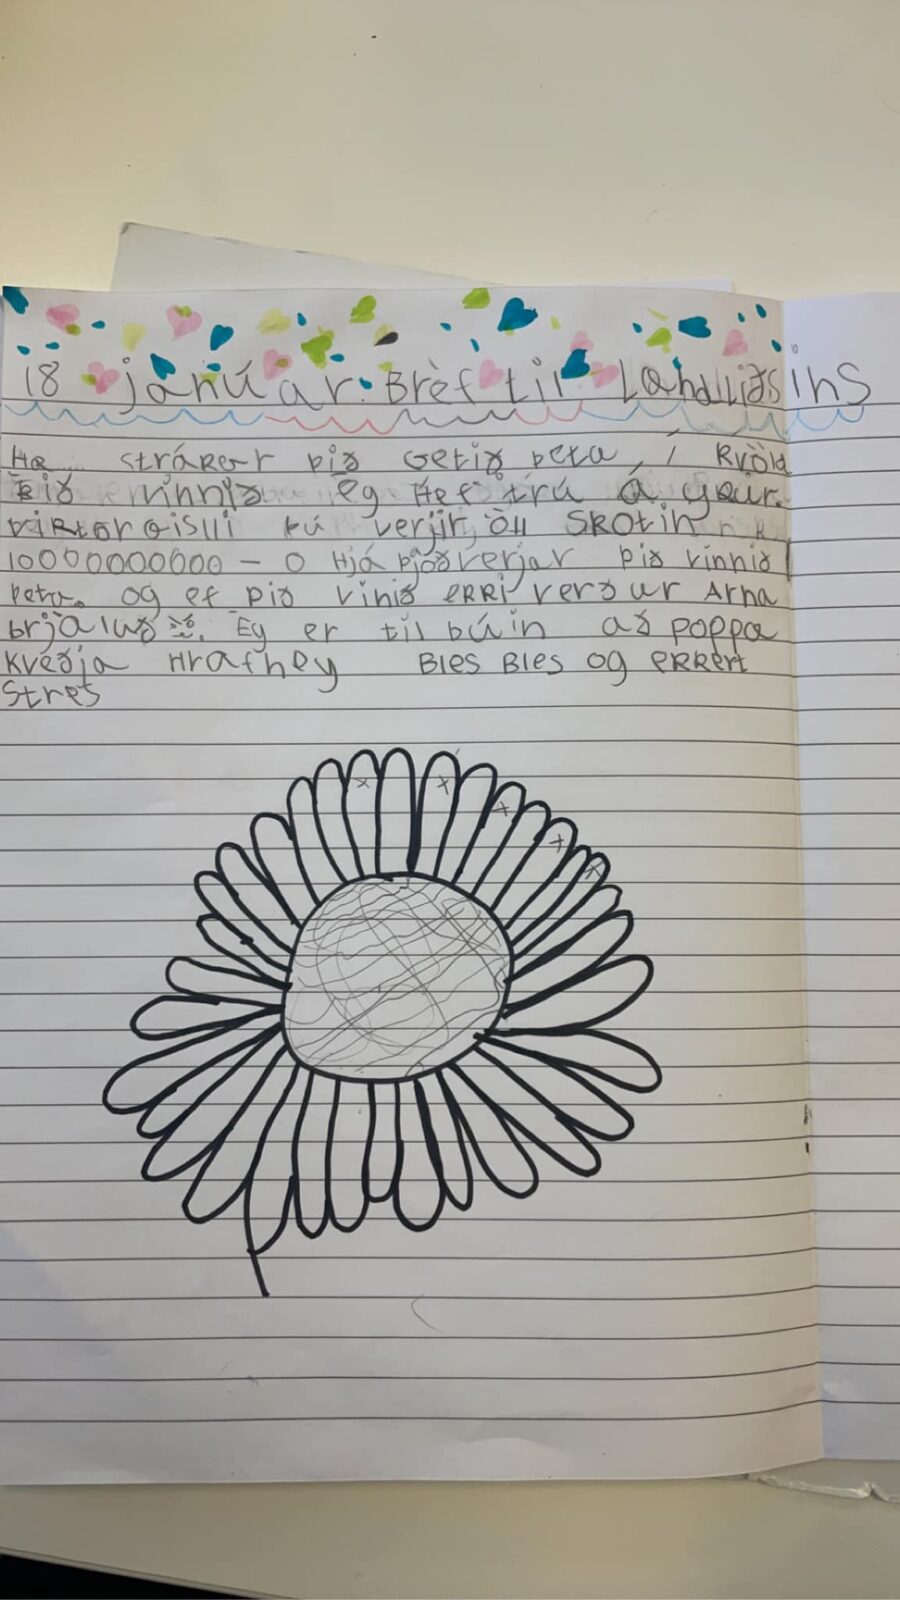 18 janúar. Brèf til Landliðsins
Hæ strákar þið Getið þeta í kvöld
Þið vinnið Eg Hef trú á ykur.
viktor gisli þú verjir öll skotin
10000000000 - 0 Hjá þjóðverjar þið vinnið
þeta. og ef þið vinið ekki verður Arna
brjáluð. Eg er til búin að poppa
kveðja Hrafney Bles Bles og ekkert
stres